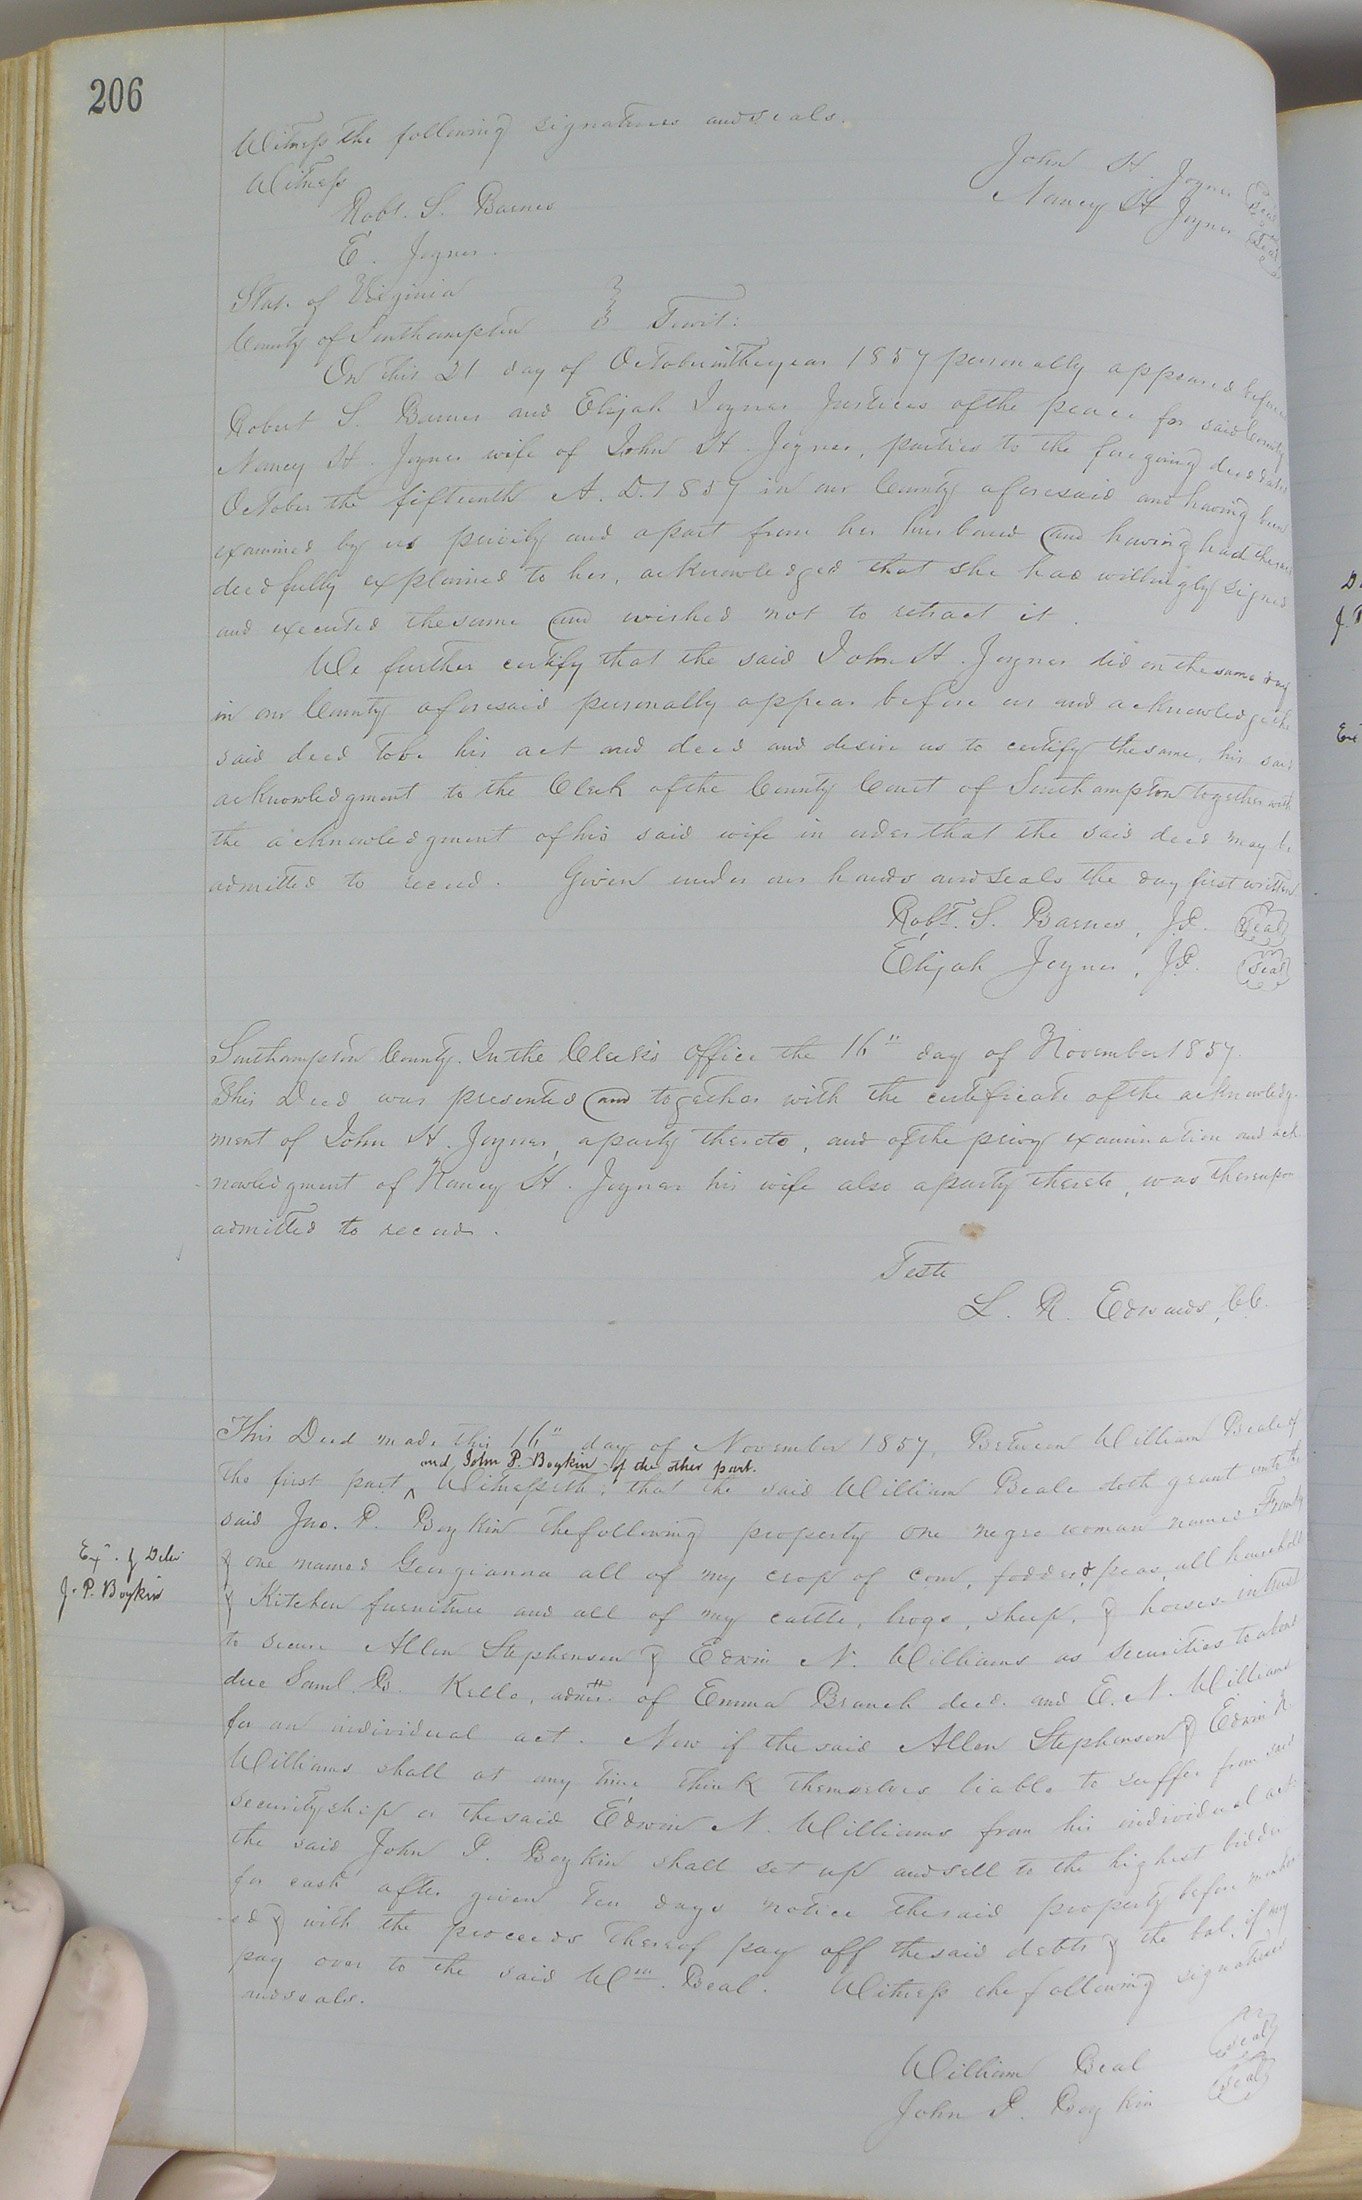 206
Witness the following signatures and seals.
John H. Joyner Seal
Witness
Nancy H Joyner Seal
Robt. S. Barnes
E. Joyner.
Stat. of Virginia
County of Southampton } Towit:
On this 21 day of October in the year 1857 personally appeared before
Robert S. Barnes and Elijah Joyner Justices of the peace for said County
Nancy H. Joyner wife of John H. Joyner, parties to the foregoing deed dated
October the fifteenth A. D. 1857 in our County aforesaid and having been
examined by us privily and apart from her husband and having had the said
deed fully explained to her, acknowledged that she had willingly signed
and executed the same and wished not to retract it.
We further certify that the said John H. Joyner did on the same day
in our County aforesaid personally appear before us and acknowledge the
said deed to be his act and deed and desire us to certify the same, his said
acknowledgment to the Clerk of the County Court of Southampton together with
the acknowledgment of his said wife in order that the said deed may be
admitted to record. Given under our hands and seals the day first written
Robt. S. Barnes, J.P. Seal
Elijah Joyner, J.P. Seal
Southampton County. In the Clerk's Office the 16" day of November 1857.
This Deed was presented and together with the certificate of the acknowledg-
ment of John H. Joyner, a party thereto, and of the privy examination and ack
nowledgment of Nancy H. Joyner his wife also a party thereto, was thereupon
admitted to record.
Teste
L. R. Edwards, CC.
This Deed made this 16" day of November 1857, Between William Beale of
and John P. Boykin of the other part.
the first part ^ Witnesseth: that the said William Beale doth grant unto the
said Jno. P. Boykin the following property one negro woman named Franky
& one named Georgianna all of my crop of corn, fodder & peas, all household
Ex'd. & Deliv
J. P. Boykin
& Kitchen furniture and all of my cattle, hogs, sheep, & horses in trust
to secure Allen Stephenson & Edwin N. Williams as securities to a bond
due Saml. B. Kello, admr. of Emma Branch decd. and E. N. Williams
for an individual act. Now if the said Allen Stephenson & Edwin N.
Williams shall at any time think themselves liable to suffer from said
securityship or the said Edwin N. Williams from his individual act.
the said John P. Boykin shall set up and sell to the highest bidder
for cash after given ten days notice the said property before mention
-ed & with the proceeds thereof pay off the said debts & the bal. if any
pay over to the said Wm. Beal. Witness the following signatures
and seals.
William Beal Seal
John P. Boykin Seal